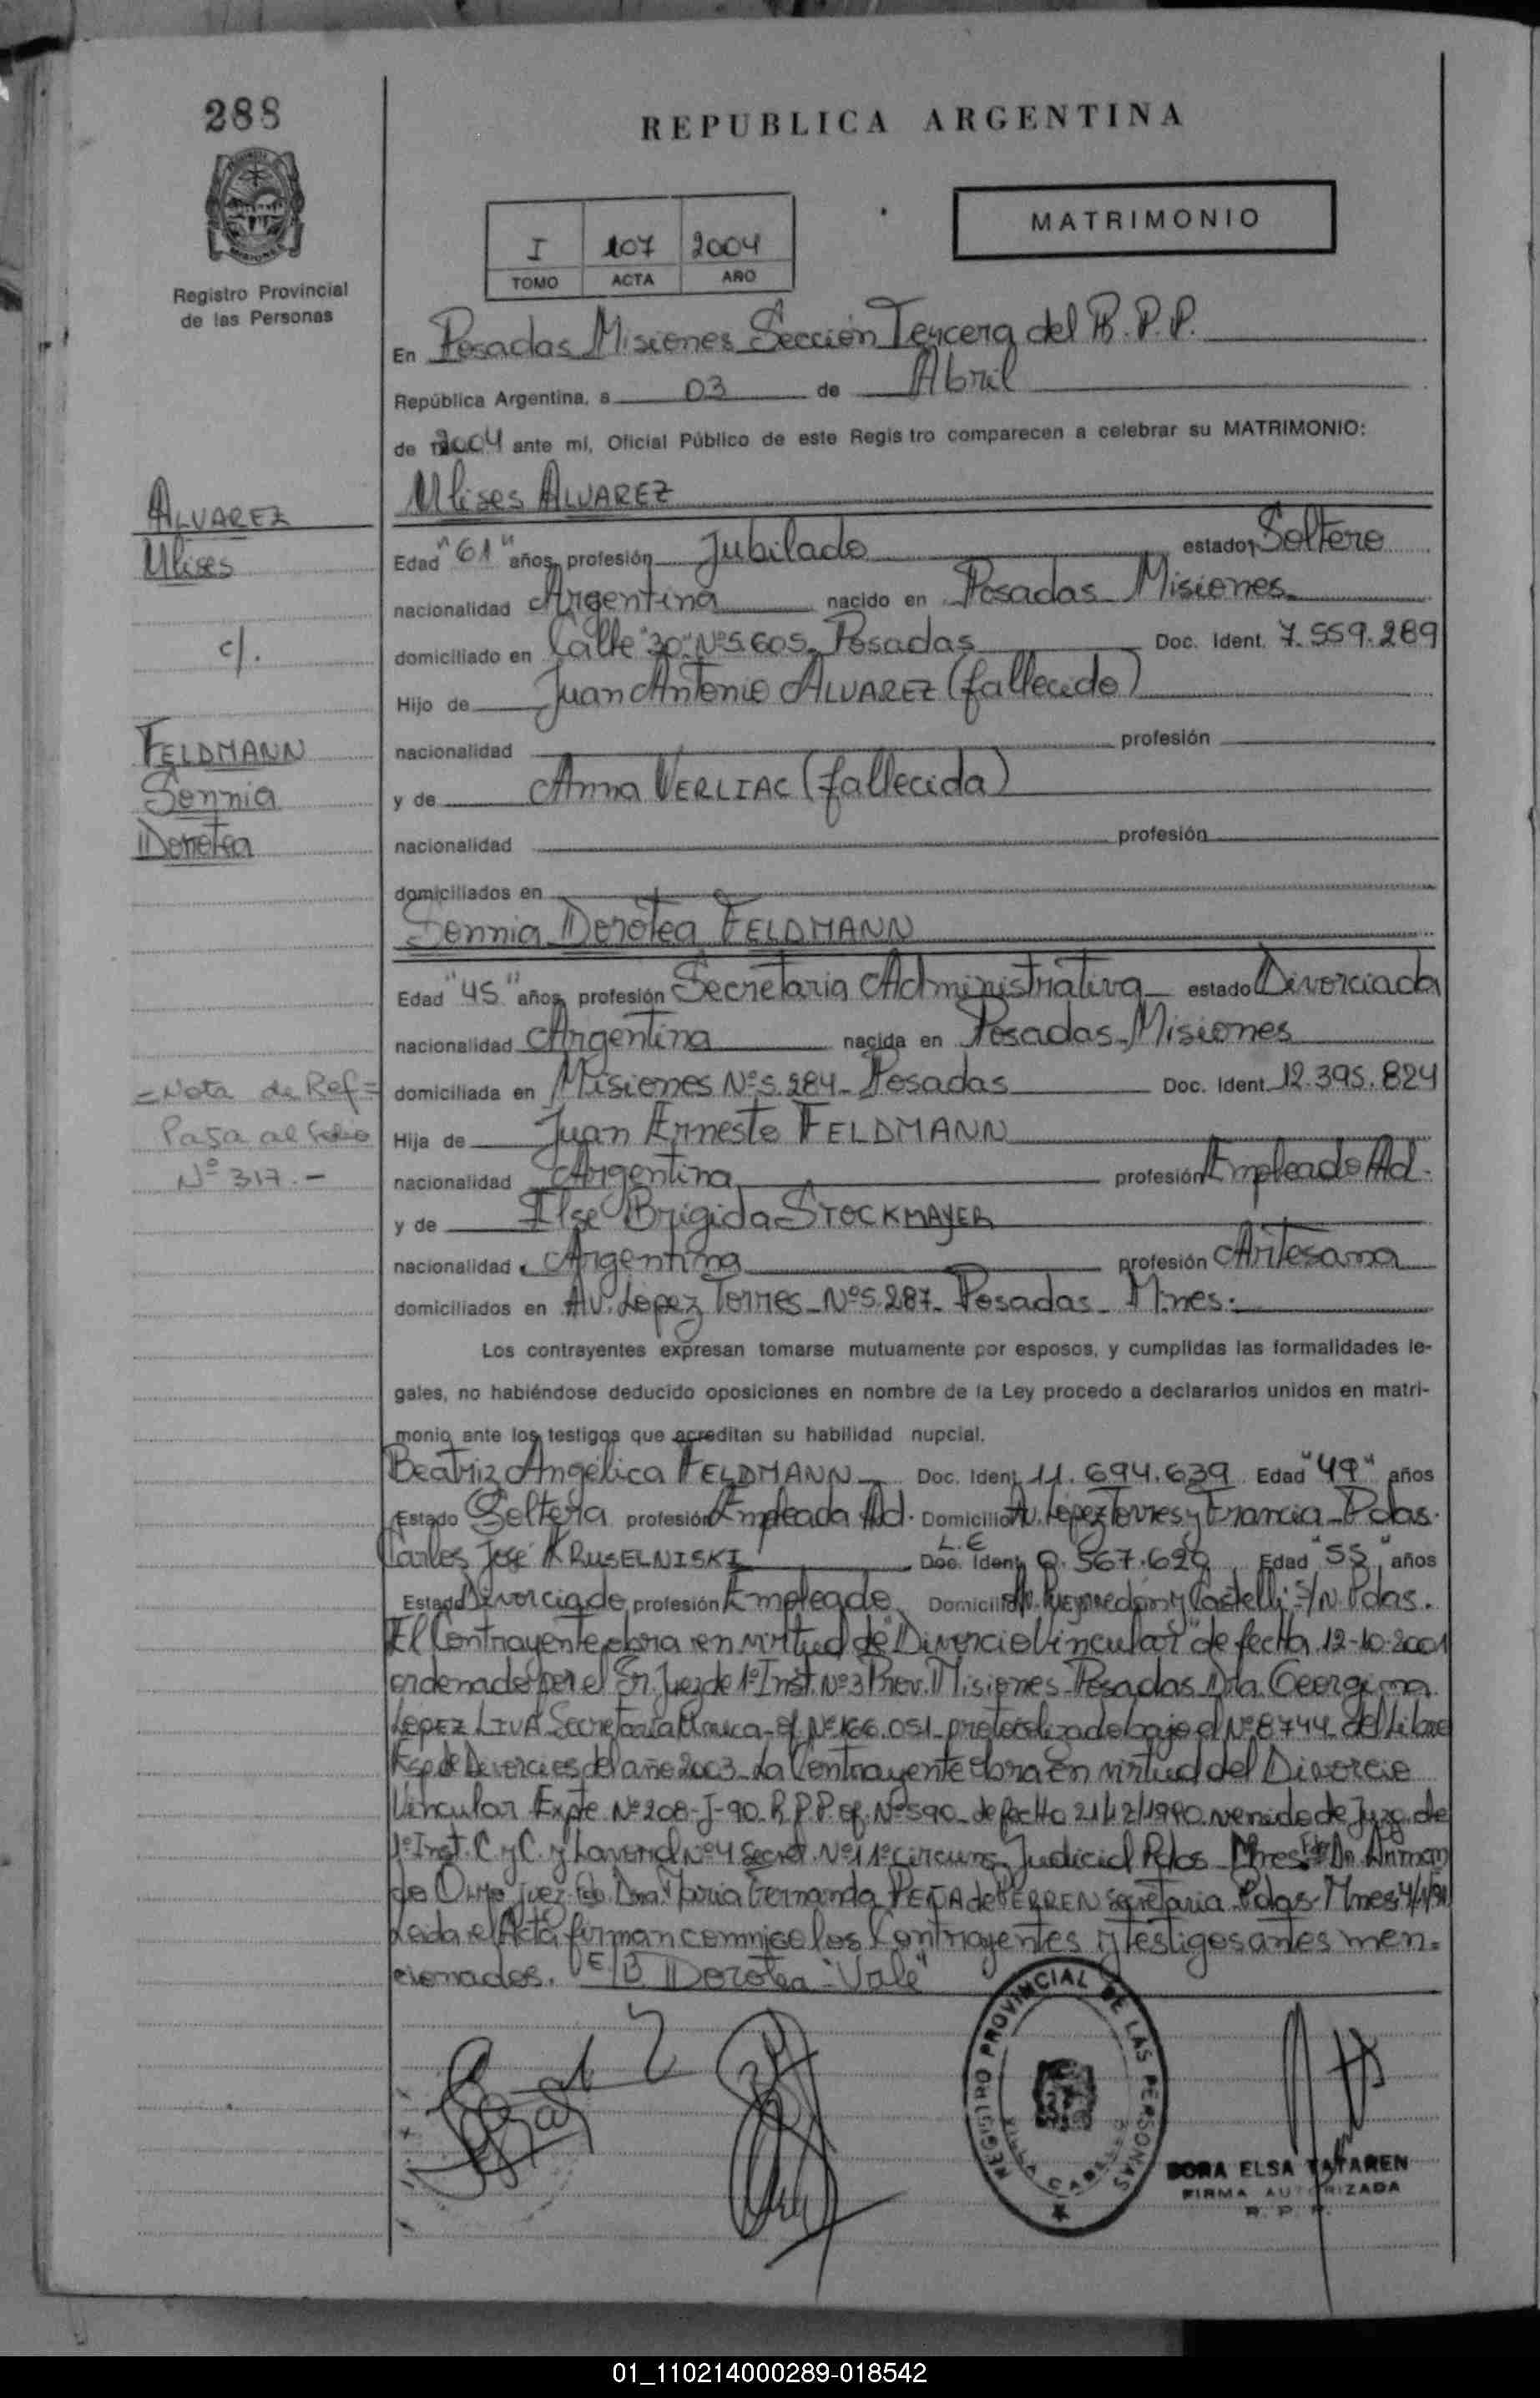 288
REPUBLICA ARGENTINA
MATRIMONIO
I 107 2004
TOMO ACTA AÑO
Registro Provincial
de las Personas
En Posadas Misiones Sección Tercera del R.P.P.
República Argentina, a 03 de Abril
de 2004 ante mí, Oficial Público de este Registro comparecen a celebrar su MATRIMONIO:
ALVAREZ
Ulises
c/.
FELDMANN
Sonnia
Dorotea
Ulises ALVAREZ
Edad "61" años, profesión Jubilado estado Soltero
nacionalidad Argentina nacido en Posadas Misiones
domiciliado en Calle "30" Nº 5.605 Posadas Doc. Ident. 7.559.289
Hijo de Juan Antonio ALVAREZ (fallecido)
nacionalidad profesión
y de Anna VERLIAC (fallecida)
nacionalidad profesión
domiciliados en
Sonnia Dorotea FELDMANN
Edad "45" años, profesión Secretaria Administrativa estado Divorciada
nacionalidad Argentina nacida en Posadas Misiones
domiciliada en Misiones Nº 5.284 Posadas Doc. Ident. 12.395.824
=Nota de Ref=
Pasa al folio
Nº 317.-
Hija de Juan Ernesto FELDMANN
nacionalidad Argentina profesión Empleado Ad.
y de Ilse Brigida STOCKMAYER
nacionalidad Argentina profesión Artesana
domiciliados en Av. Lopez Torres Nº 5.287 Posadas Mnes.
Los contrayentes expresan tomarse mutuamente por esposos, y cumplidas las formalidades le-
gales, no habiéndose deducido oposiciones en nombre de la Ley procedo a declararlos unidos en matri-
monio ante los testigos que acreditan su habilidad nupcial.
Beatriz Angélica FELDMANN Doc. Ident. 11.694.639 Edad "49" años
Estado Soltera profesión Empleada Ad. Domicilio Av. Lopez Torres y Francia Pdas.
Carlos José KRUSELNISKI L.E Doc. Ident. 8.567.629 Edad "55" años
Estado Divorciado profesión Empleado Domicilio Av. Pueyrredón y Castelli S/N. Pdas.
El Contrayente obra en virtud de "Divorcio Vincular" de fecha 12-10-2001
ordenado por el Sr. Juez de 1º Inst. Nº 3 Prov. Misiones Posadas Dra Georgina
LOPEZ LIVA Secretaría Unica Of. Nº 166.051 protocolizado bajo el Nº 8744 del Libro
Esp. de Divorcios del año 2003 La Contrayente obra en virtud del Divorcio
Vincular Expte Nº 208-J-90 R.P.P. of. Nº 590 de fecho 21/12/1990 venido de Juzg. de
1º Inst. C y C. y Laboral Nº 4 Secret. Nº 1 1º Circuns. Judicial Pdas Mnes Dr. Arman
do Juez Fdo. Dra. Maria Fernanda PEÑA de Secretaria Pdas Mnes
Leida el Acta firman conmigo los Contrayentes y testigos antes men=
cionados. E/B Dorotea "Vale"
REGISTRO PROVINCIAL DE LAS PERSONAS
DORA ELSA TATAREN
FIRMA AUTORIZADA
R. P. P.
01_110214000289-018542